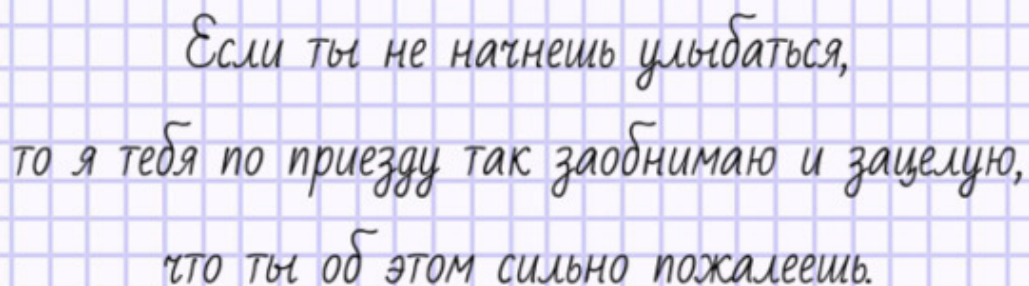 Если ты не начнешь улыбаться,
то я тебя по приезду так заобнимаю и зацелую,
что ты об этом сильно пожалеешь.